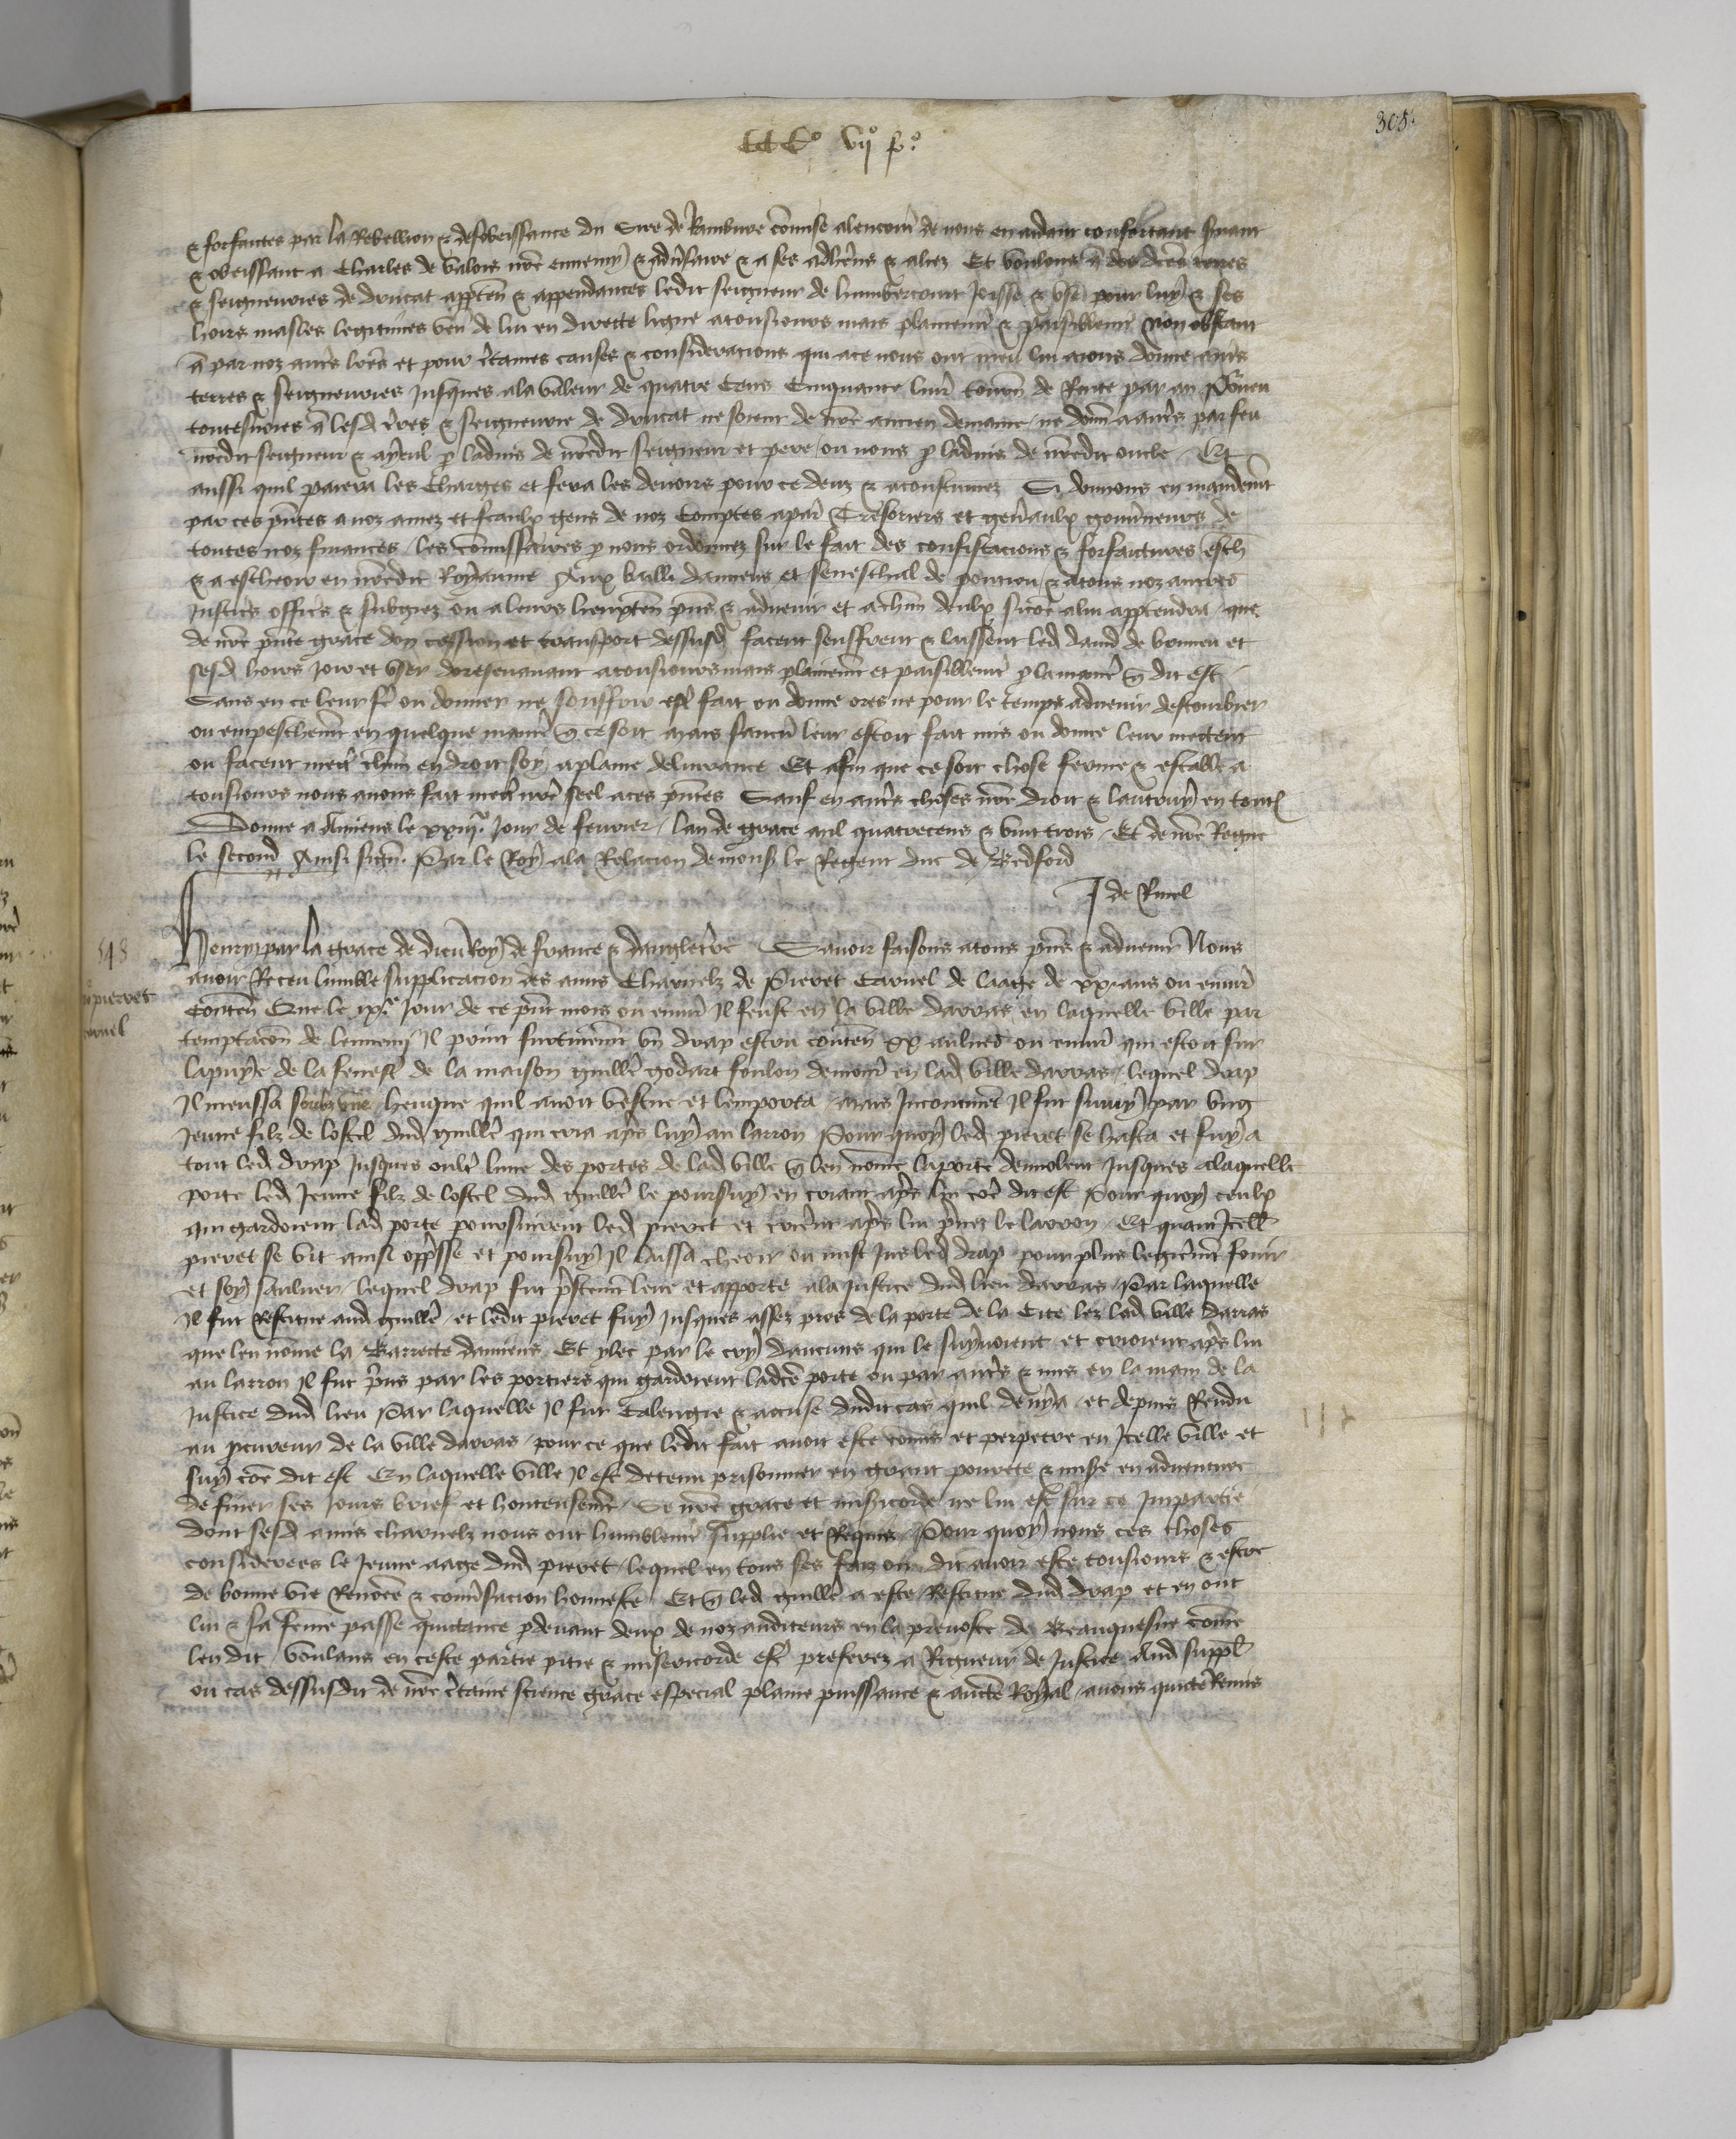 CCC° vij p°.
305
& forfaictes par la Rebellion & desobeissance du Sire de Rambure cõmise alencontr̃ de nous en aidant confortant seruant
& obeissant a Charles de Valois nr̃e ennemy & aduersaire & a ses adherẽs & aliez Et voulons q̃ des dictes terres
& seigneuries de drucat apptẽn & appendances ledit seigneur de humbercourt Joisse & vse pour luy & ses
hoirs masles legitimes venꝰ de lui en directe ligne atousiours mais plainemẽt & paisiblemẽt Non obstant
q̃ par noz autr̃s lr̃es et pour c̃taines causes & consideracions qui ace nous ont meu lui aions donne autr̃s
terres & seigneuries Jusques ala valeur de quatre Cens Cinquante liur̃ tourñ de Rente par an Pourueu
toutesuoies q̃ lesd̃ tr̃res & seigneurie de drucat ne soient de nr̃e ancien demaine / ne donñ a autr̃s par feu
nr̃edit seigneur & ayeul p̃ laduis de nr̃edit seigneur et pere / ou nous p̃ laduis de nr̃edit oncle / Et
aussi quil paiera les Charges et fera les deuoirs pour ce deuz & acoustumez Si donnons en mandemẽt
par ces p̃ntes a noz amez et feaulx gens de noz Comptes apar̃ Tresoriers et gen̂aulx gouu̾neurs de
toutes noz finances / les cõmissaires p̃ nous ordonnez sur le fait des confiscacions & forfaictures esch̃
& a escheoir en nr̃edit Royaume Aux bailli damiens et seneschal de pontieu & atous noz autres
Justicis̃ officis̃ & subgiez ou a leurs lieuxteñ p̃ns & aduenir et achũn deulx sicõe alui apptendra / que
de nr̃e p̃nte grace don cession et transport dessusd̃ facent seuffrent & laissent led̃ dauid de brimeu et
sesd̃ hoirs Joir et vser doresenauant atousioursmais plainemẽt et paisiblemẽt p̃ la manr̃e q̃ dit est
Sans en ce leur fẽ ou donner ne souffrir estr̃ fait ou donne ores ne pour le temps aduenir destourbier
ou empeschemẽt en quelque manir̃ q̃ ce soit mais saucũ leur estoit fait mis ou donne leur mettent
ou facent mectr̃ chũn endroit soy a plaine deliurance Et afin que ce soit chose ferme & estable a
tousiours nous auons fait mectr̃ nr̃e seel aces p̃ntes Sauf en autr̃s choses nr̃e droit & lautruy en toutes
Donne a Amiens le xxiiije Jour de feurier / lan de grace mil quatrecens & vint trois / Et de nr̃e Regne
le second Ainsi signẽ. Par le Roy ala Relacion de mons̃ le Regent duc de Bedford
J de Rinel
148
Henry par la grace de dieu Roy de france & dangleterre Sauoir faisons atous p̃ns & aduenir Nous
auoir Receu lumble supplicacion des amis Charnelz de Pieret Caruel de laage de xx ans ou enuir̃
Pieret
Conteñ Que le ixe Jour de ce p̃nt mois ou enuir̃ Il feust en la ville darras en laquelle ville par
temptacõn de lennemi Il print furtiuemẽt vn drap escru conteñ xx aulnes ou enuir̃ qui estoit sur
lapuye de la fenestr̃ de la maison guill̃e godart foulon demour̃ en lad̃ ville darras / lequel drap
Il mussa soubz vne heuque quil auoit vestue et lemporta mais Incontinẽt Il fut suiuy par vng
Jeune filz de lostel dud̃ guill̃e qui cria aprẽs luy au larron Pour quoy led̃ pieret se hasta et fuy a
tout led̃ drap Jusques oultr̃ lune des portes de lad̃ ville q̃ len nõme laporte demolent Jusques alaquelle
porte led̃ Jeune filz de lostel dud̃ guill̃e le poursuy en criant apr̃s lui cõe dit est Pour quoy ceulx
qui gardoient lad̃ porte poursuirent led̃ pieret et crierẽt apr̃s lui prenez le larron / Et quant Icell̃
pieret se vit ainsi oppresse et poursuy Il laissa cheoir ou mist Jus led̃ drap pour plus legieremẽt fouir
et soy sauluer / lequel drap fut p̃stemẽt leue et apporte ala Justice dud̃ lieu darras / Par laquelle
Il fut Restitue aud̃ guill̃e / et ledit pieret fuy Jusques assez pres de la porte de la Cite lez lad̃ ville darras
que len nõme la Barrecte damiens Et ylec par le cry daucuns qui le suyuoient et crioient apr̃s lui
au larron Il fut prins par les portiers qui gardoient ladcẽ porte ou par autr̃s & mis en la main de la
Justice dud̃ lieu Par laquelle Il fut Calengie & accuse dudit cas quil denya / et depuis Rendu
au procureur de la ville darras / pour ce que ledit fait auoit este cõmis et perpetre en Icelle ville et
suy cõe dit est En laquelle ville Il est detenu prisonnier en grant pourete & misere en aduenture
de finer ses Jours brief et honteusemẽt / Se nr̃e grace et misericorde ne lui est sur ce Impartie
dont sesd̃ amis charnelz nous ont humblemẽt supplie et Requis / Pour quoy nous ces choses
considerees le Jeune aage dud̃ pieret / lequel en tous ses faiz on dit auoir este tousiours & estre
de bonne vie Renõmee & conuersacion honneste Et q̃ led̃ guill̃e a este Restitue dud̃ drap et en ont
lui & sa feme passe quictance pardeuant deux de noz auditeurs en la preuoste de Beauquesne cõme
len dit / Voulans en ceste partie pitie & misericorde estr̃ preferez a Rigueur de Justice Aud̃ suppl̃
ou cas dessusdit de nr̃e c̃taine science grace especial plaine puissance & auctẽ Royal / auons quicte Remis